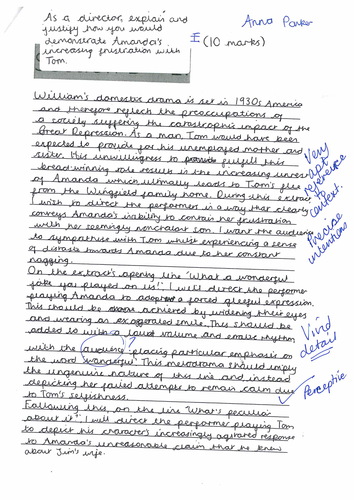 As a director, explain and
justify how you would
demonstrate Amanda's
increasing frustration with
Tom.
Anna Parker
I (10 marks)
William's domestic drama is set in 1930s America
and therefore reflect the preoccupations of
a society suffering the catastrophic impact of the
Great Depression. As a man, Tom would have been
expected to provide for his unemployed mother and
sister. His unwillingness to fulfill this
bread winning role result in the increasing unrest
of Amanda which ultimally leads to Tom's flee
from the Wingfield family home. During this extract
I wish to direct the performer in a way that clearly
conveys Amanda's inability to contain her frustration
with her seemingly nonchalant son. I want the audience
to sympathise with Tom whilst experiencing a sense
of distaste towards Amanda due to her constant
nagging.
Very
apt
reference
to
context.
Precise
intentions
On the extract's opening line 'What a wonderful
joke you played on us!', I will direct the performer
playing Amanda to adopt a forced gleeful expression.
This should be achieved by widening their eyes
and wearing an exaggerated smile. This should be
added to with a loud volume and erratic rhythm
with the audience, placing particular emphasis on
the word 'wonderful'. This melodrama should imply
the ungenuine nature of this line and instead
depicting her failed attempts to remain calm due
to Tom's selfishness.
Vivid
detail
Perceptive
Following this, on the line 'What's peculiar
about it?', I will direct the performer playing Tom
to depict his character's increasingly agitated response
to Amanda's unreasonable claim that he knew
about Jim's wife.